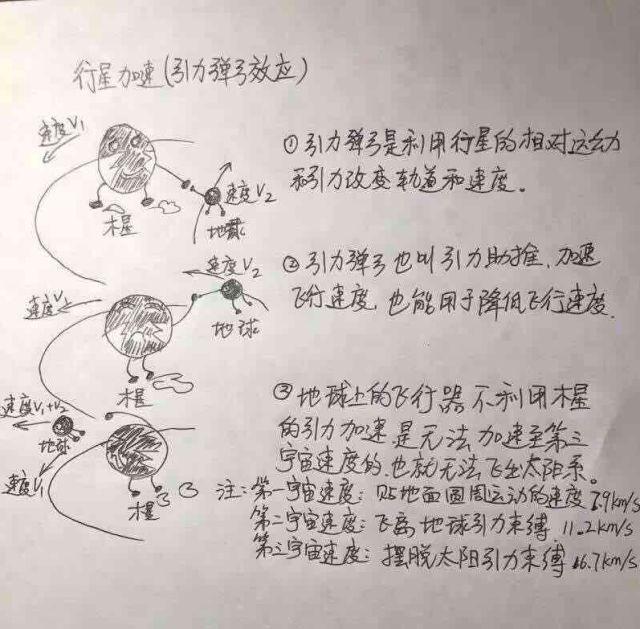 行星加速(引力弹弓效应)
速度V₁
速度V₂
木星
地球
①引力弹弓是利用行星的相对运动
和引力改变轨道和速度。
速度V₂
速度V₁
地球
木星
②引力弹弓也叫引力助推,加速
飞行速度,也能用于降低飞行速度.
速度V₁+V₂
地球
速度V₁
木星
③地球上的飞行器不利用木星
的引力加速是无法加速至第三
宇宙速度的,也就无法飞出太阳系。
注:第一宇宙速度:贴地面圆周运动的速度7.9km/s
第二宇宙速度:飞离地球引力束缚11.2km/s
第三宇宙速度:摆脱太阳引力束缚16.7km/s